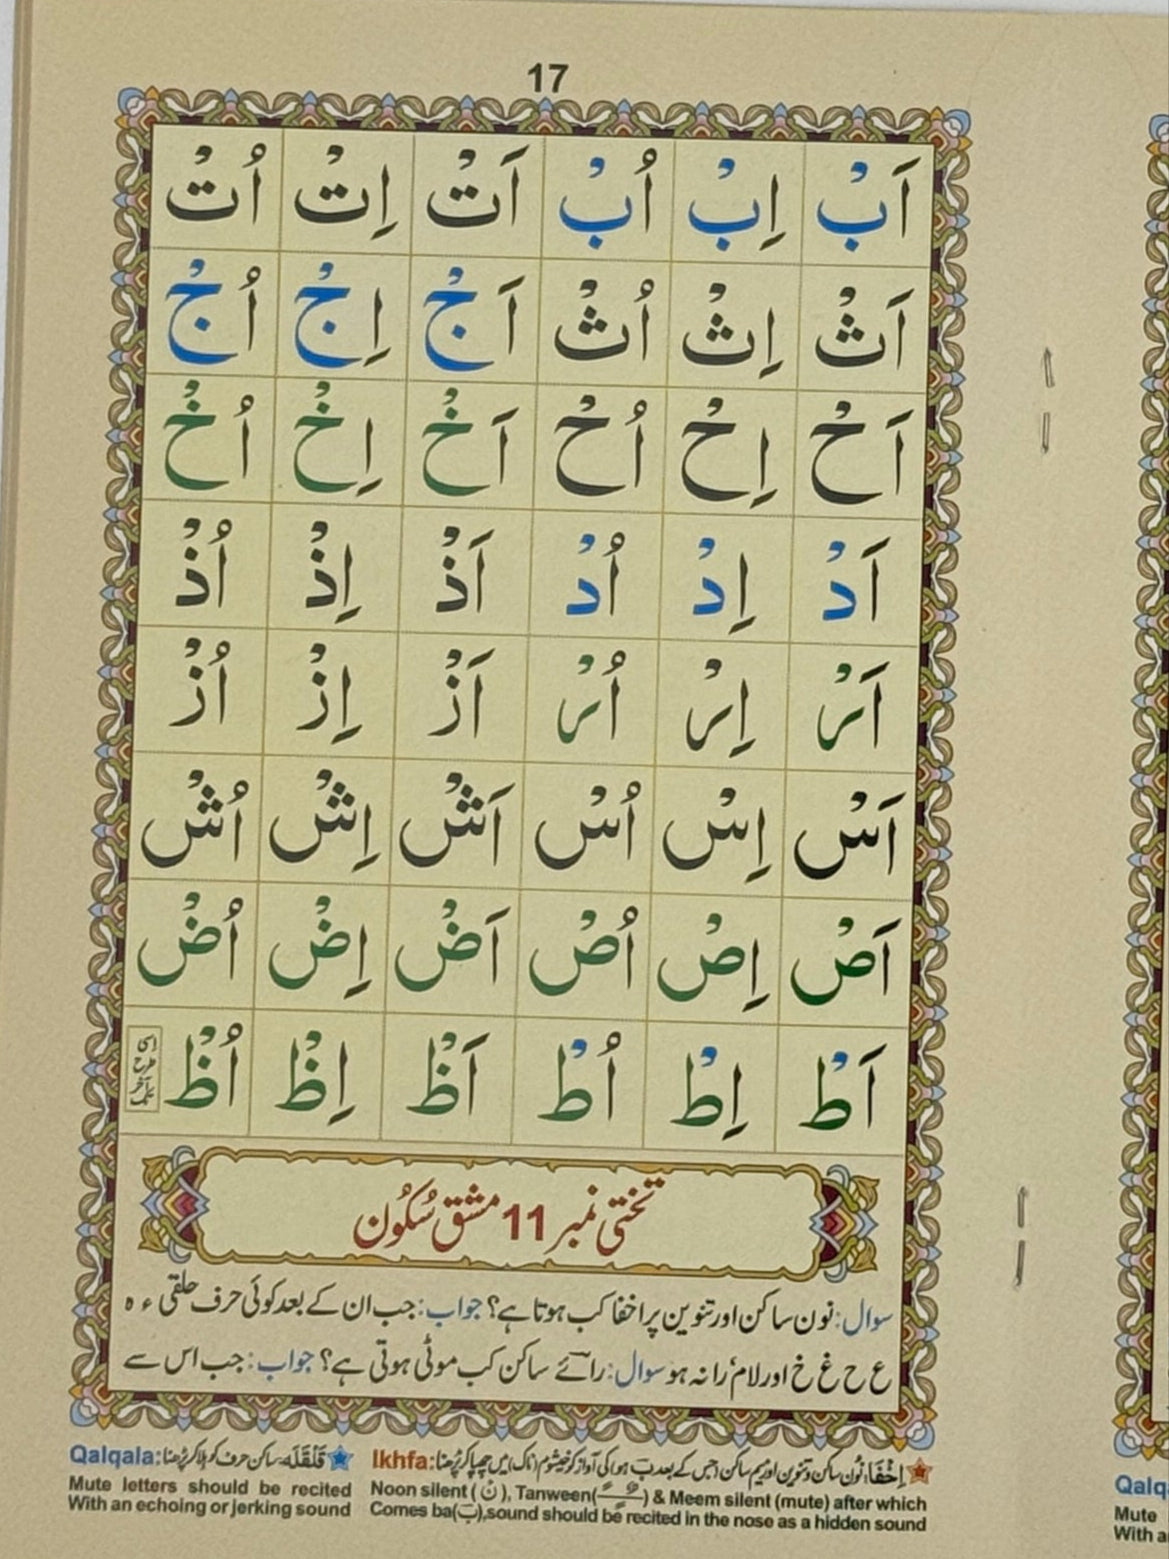 17
اَبْ اِبْ اُبْ اَتْ اِتْ اُتْ
اَثْ اِثْ اُثْ اَجْ اِجْ اُجْ
اَحْ اِحْ اُحْ اَخْ اِخْ اُخْ
اَدْ اِدْ اُدْ اَذْ اِذْ اُذْ
اَرْ اِرْ اُرْ اَزْ اِزْ اُزْ
اَسْ اِسْ اُسْ اَشْ اِشْ اُشْ
اَصْ اِصْ اُصْ اَضْ اِضْ اُضْ
اَطْ اِطْ اُطْ اَظْ اِظْ اُظْ
اسی
طرح
آخر
تک
تختی نمبر 11 مشق سُکُون
سوال: نون ساکن اور تنوین پر اخفا کب ہوتا ہے؟ جواب: جب ان کے بعد کوئی حرف حلقی ء ہ
ع ح غ خ اور لام‘ را نہ ہو سوال: رائے ساکن کب موٹی ہوتی ہے؟ جواب: جب اس سے
Ikhfa: اِخْفَا: نُون ساکن و تنوین اور میم ساکن (جس کے بعد ب ہو) کی آواز کو خیشوم (ناک) میں چھپا کر پڑھنا
Noon silent (نْ), Tanween(ـًـٍـٌ) & Meem silent (mute) after which
Comes ba(بَ),sound should be recited in the nose as a hidden sound
Qalqala: قَلْقَلَه: ساکن حرف کو ہلا کر پڑھنا
Mute letters should be recited
With an echoing or jerking sound
Qalq
Mute
With a